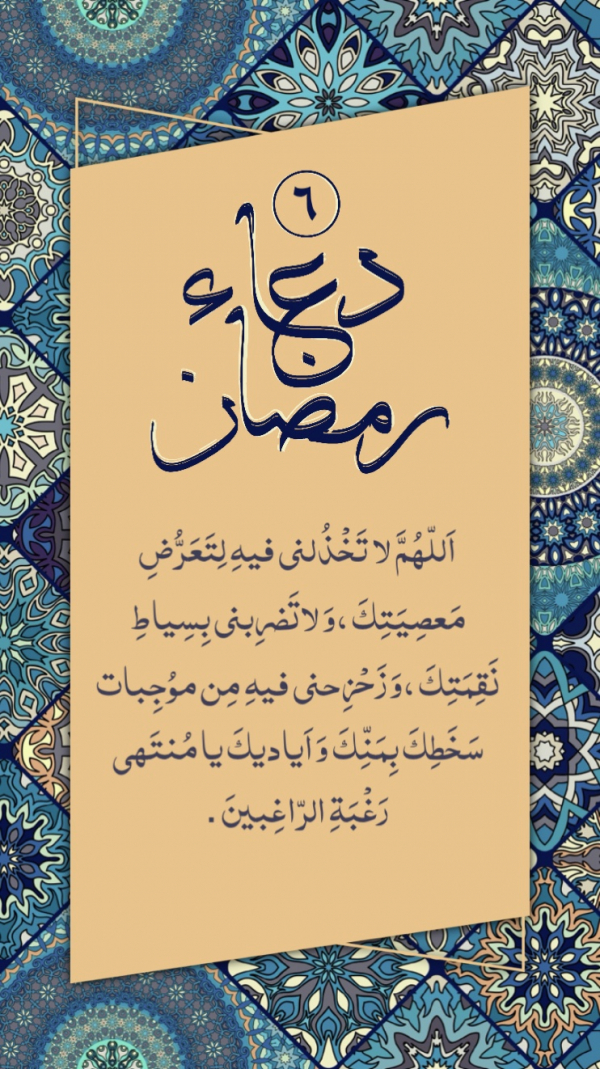 ٦
دعاء
رمضان
اَللّهُمَّ لا تَخْذُلنی فیهِ لِتَعَرُّضِ
مَعصِیَتِكَ ،وَلا تَضرِبنی بِسِیاطِ
نَقِمَتِكَ ،وَزَحْزِحنی فیهِ مِن موُجِبات
سَخَطِكَ بِمَنِّكَ وَاَیادیكَ یا مُنتَهی
رَغْبَةِ الرّاغِبینَ .